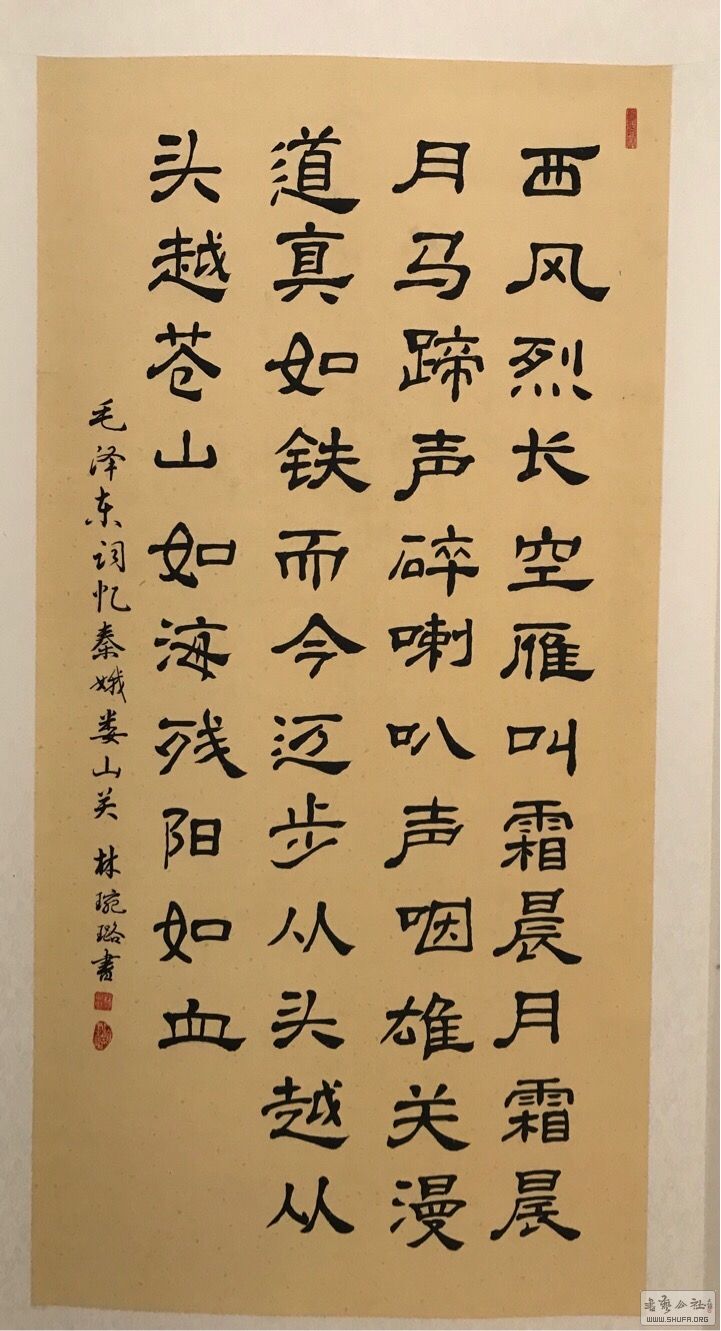 西风烈长空雁叫霜晨月霜晨
月马蹄声碎喇叭声咽雄关漫
道真如铁而今迈步从头越从
头越苍山如海残阳如血
毛泽东词忆秦娥娄山关 林琬璐书
书艺公社
WWW.SHUFA.ORG